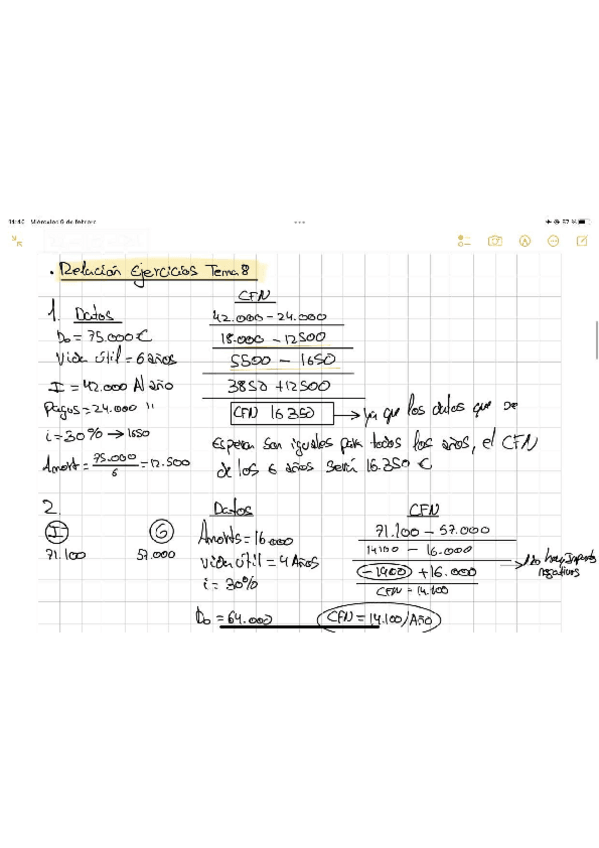 14:40 Miércoles 5 de febrero
57 %
• Relación Ejercicios Tema 8
1. Datos
D₀ = 75.000€
Vida útil = 6 años
I = 42.000 Al año
Pagos = 24.000 "
i = 30% → 1650
Amort = 75.000/6 = 12.500
CFN
42.000 - 24.000
18.000 - 12500
5500 - 1650
3850 + 12500
CFN 16350 → ya que los datos que se
esperan son iguales para todos los años, el CFN
de los 6 años será 16.350 €
2.
I G
71.100 57.000
Datos
Amorts = 16000
Vida útil = 4 Años
i = 30%
D₀ = 64.000
CFN
71.100 - 57.000
14100 - 16.000
-1900 + 16.000 → No hay
negativos
CFN = 14.100
CFN = 14.100/Año